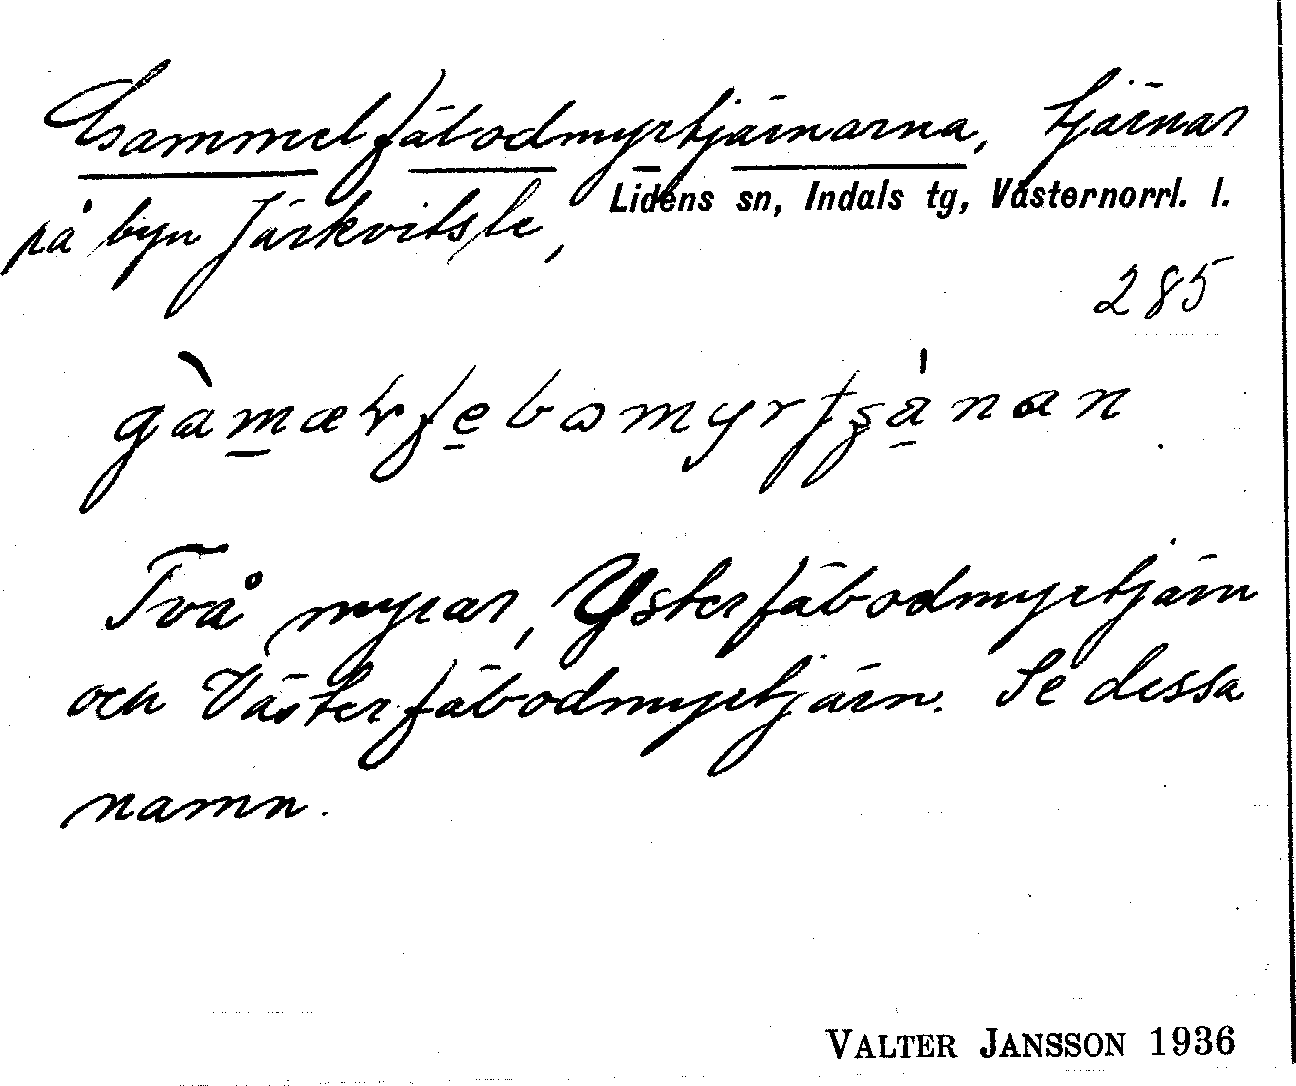 Gammelfäbodmyrtjärnarna, tjärnar
på byn Järkvitsle,
Lidens sn, Indals tg, Västernorrl. l.
285
Två myrar, Ysterfäbodmyrtjärn
och Västerfäbodmyrtjärn. Se dessa
namn.
VALTER JANSSON 1936